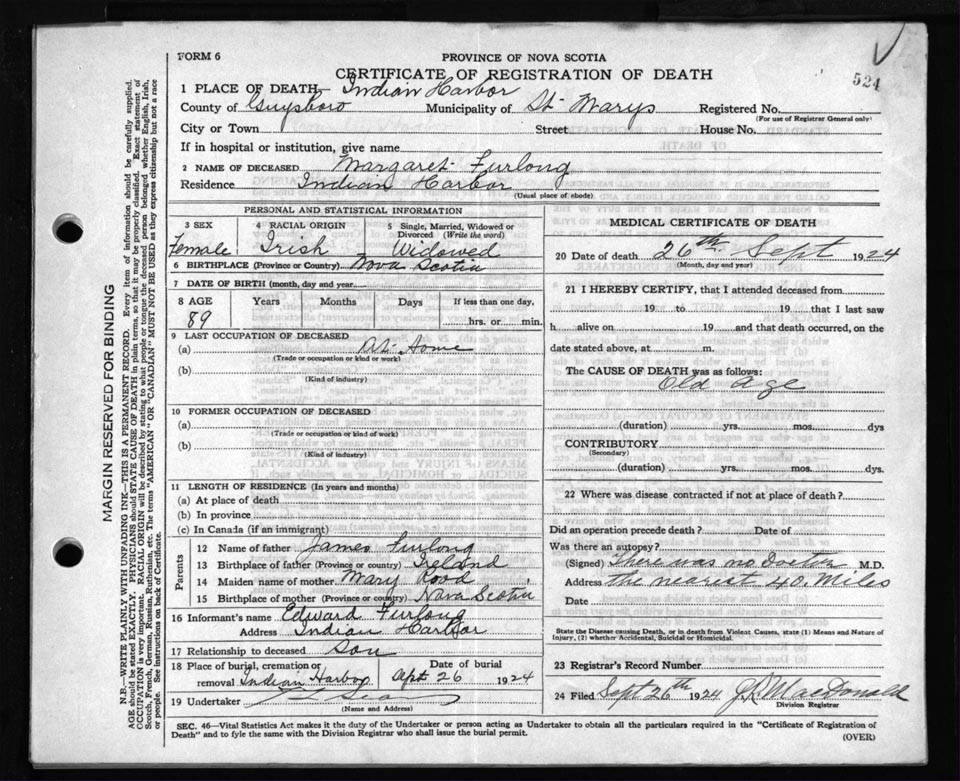 FORM 6
PROVINCE OF NOVA SCOTIA
CERTIFICATE OF REGISTRATION OF DEATH
524
1 PLACE OF DEATH— Indian Harbor
County of Guysboro Municipality of St. Marys Registered No.
(For use of Registrar General only)
City or Town Street House No.
If in hospital or institution, give name
2 NAME OF DECEASED Margaret Furlong
Residence Indian Harbor
(Usual place of abode)
PERSONAL AND STATISTICAL INFORMATION
3 SEX 4 RACIAL ORIGIN 5 Single, Married, Widowed or
Divorced (Write the word)
Female Irish Widowed
6 BIRTHPLACE (Province or Country) Nova Scotia
7 DATE OF BIRTH (month, day and year)
8 AGE Years Months Days If less than one day,
89 hrs. or min.
9 LAST OCCUPATION OF DECEASED
(a) At Home
(Trade or occupation or kind or work)
(b)
(Kind of industry)
10 FORMER OCCUPATION OF DECEASED
(a)
(Trade or occupation or kind of work)
(b)
(Kind of industry)
11 LENGTH OF RESIDENCE (In years and months)
(a) At place of death
(b) In province
(c) In Canada (if an immigrant)
Parents
12 Name of father James Furlong
13 Birthplace of father (Province or country) Ireland
14 Maiden name of mother Mary
15 Birthplace of mother (Province or country) Nova Scotia
16 Informant's name Edward Furlong
Address Indian Harbor
17 Relationship to deceased Son
18 Place of burial, cremation or Date of burial
removal Indian Harbor 26 1924
19 Undertaker
(Name and Address)
MEDICAL CERTIFICATE OF DEATH
20 Date of death 26th Sept 1924
(Month, day and year)
21 I HEREBY CERTIFY, that I attended deceased from
19 to 19 that I last saw
h alive on 19 and that death occurred, on the
date stated above, at m.
The CAUSE OF DEATH was as follows:
Old Age
(duration) yrs. mos. dys
CONTRIBUTORY
(Secondary)
(duration) yrs. mos. dys.
22 Where was disease contracted if not at place of death?
Did an operation precede death? Date of
Was there an autopsy?
(Signed) There was no Doctor M.D.
Address the nearest 40 Miles
Date
State the Disease causing Death, or in death from Violent Causes, state (1) Means and Nature of
Injury, (2) whether Accidental, Suicidal or Homicidal.
23 Registrar's Record Number
24 Filed Sept 26th 1924 MacDonald
Division Registrar
SEC. 46—Vital Statistics Act makes it the duty of the Undertaker or person acting as Undertaker to obtain all the particulars required in the "Certificate of Registration of
Death" and to fyle the same with the Division Registrar who shall issue the burial permit.
(OVER)
MARGIN RESERVED FOR BINDING
N.B.—WRITE PLAINLY WITH UNFADING INK—THIS IS A PERMANENT RECORD. Every item of information should be carefully supplied.
AGE should be stated EXACTLY. PHYSICIANS should STATE CAUSE OF DEATH in plain terms, so that it may be properly classified. Exact statement of
OCCUPATION is very important. RACIAL ORIGIN will be described by stating to what people or tongue the deceased person belonged whether English, Irish,
Scotch, French, German, Russian, Ruthenian, etc. The terms "AMERICAN" OR "CANADIAN" MUST NOT BE USED as they express citizenship but not a race
or people. See instructions on back of Certificate.